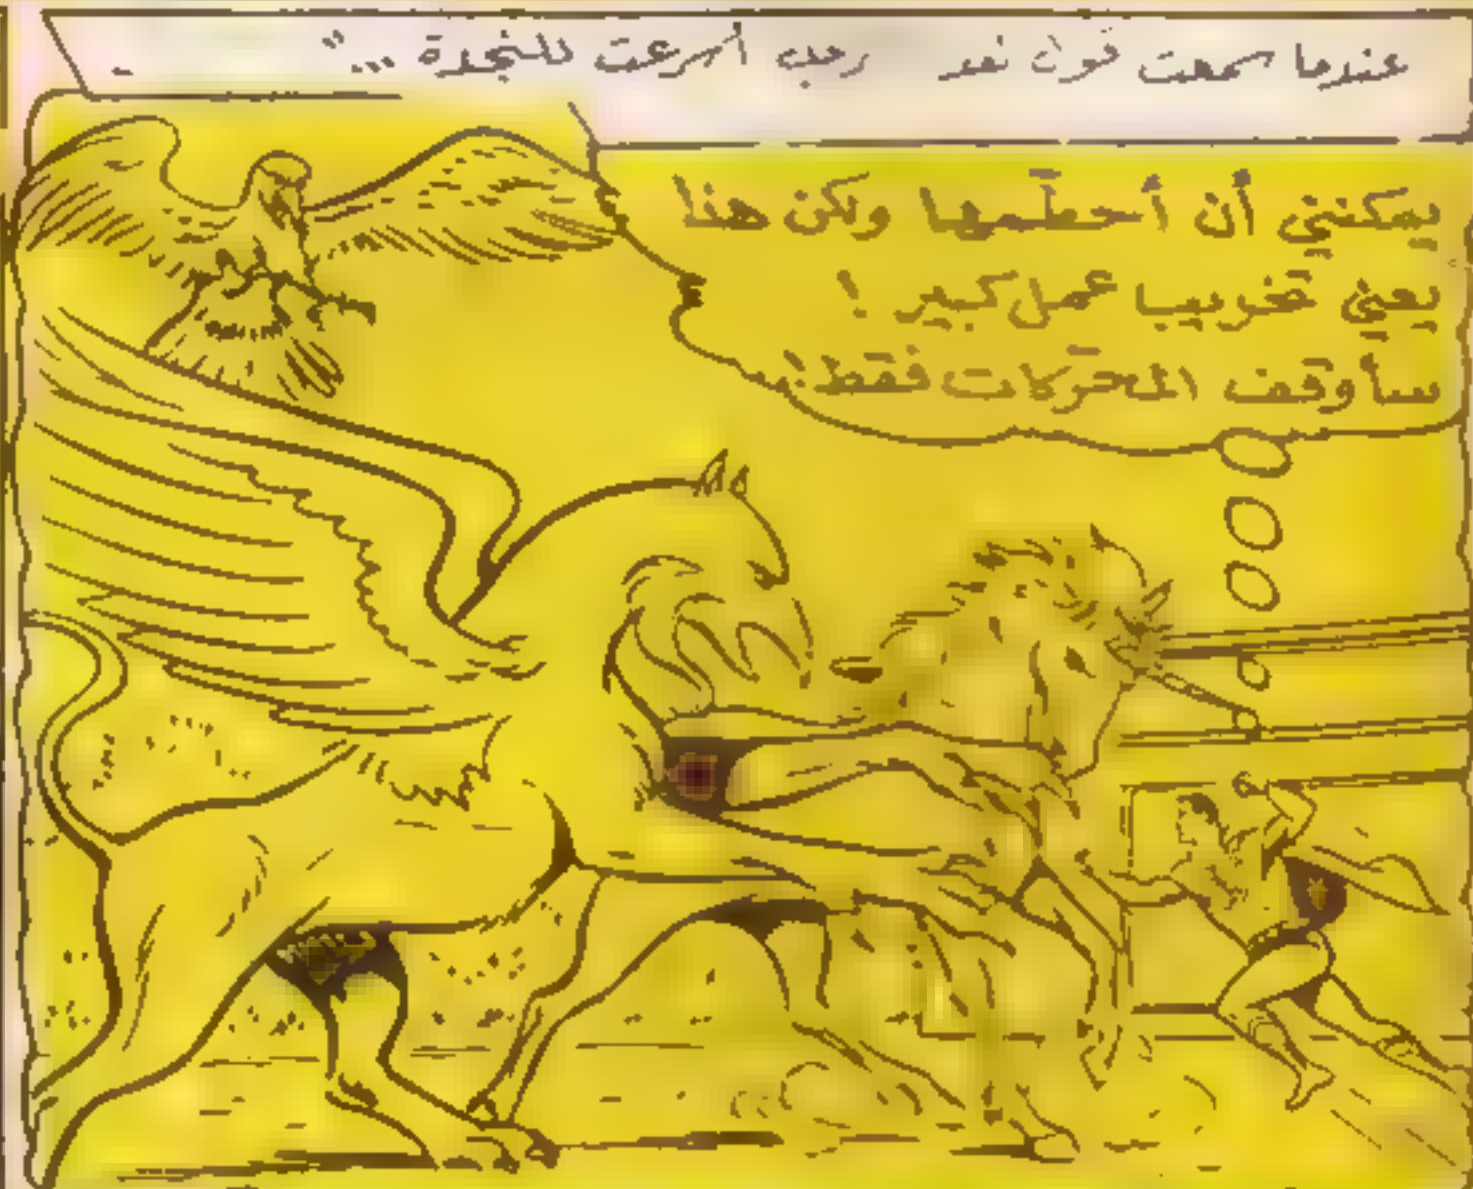 عندما سمعت قول نعد رعب أسرعت للنجدة ..."
يمكنني أن أحطّمها ولكن هذا
يعني تخريب عمل كبير !
سأوقف المحرّكات فقط!